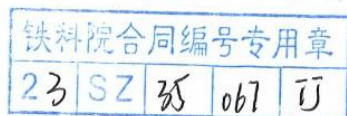 铁科院合同编号专用章
23 SZ 35 067 IJ